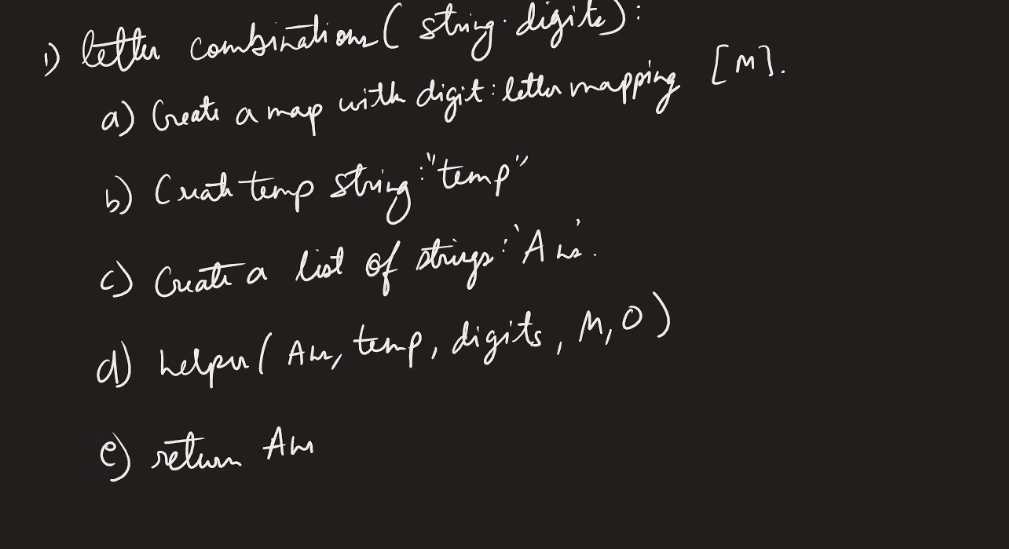 1) letter combinations ( string digits ) :
a) Create a map with digit : letter mapping [M].
b) Create temp string : "temp"
c) Create a list of strings : 'Ans'.
d) helper ( Ans, temp, digits, M, 0 )
e) return Ans